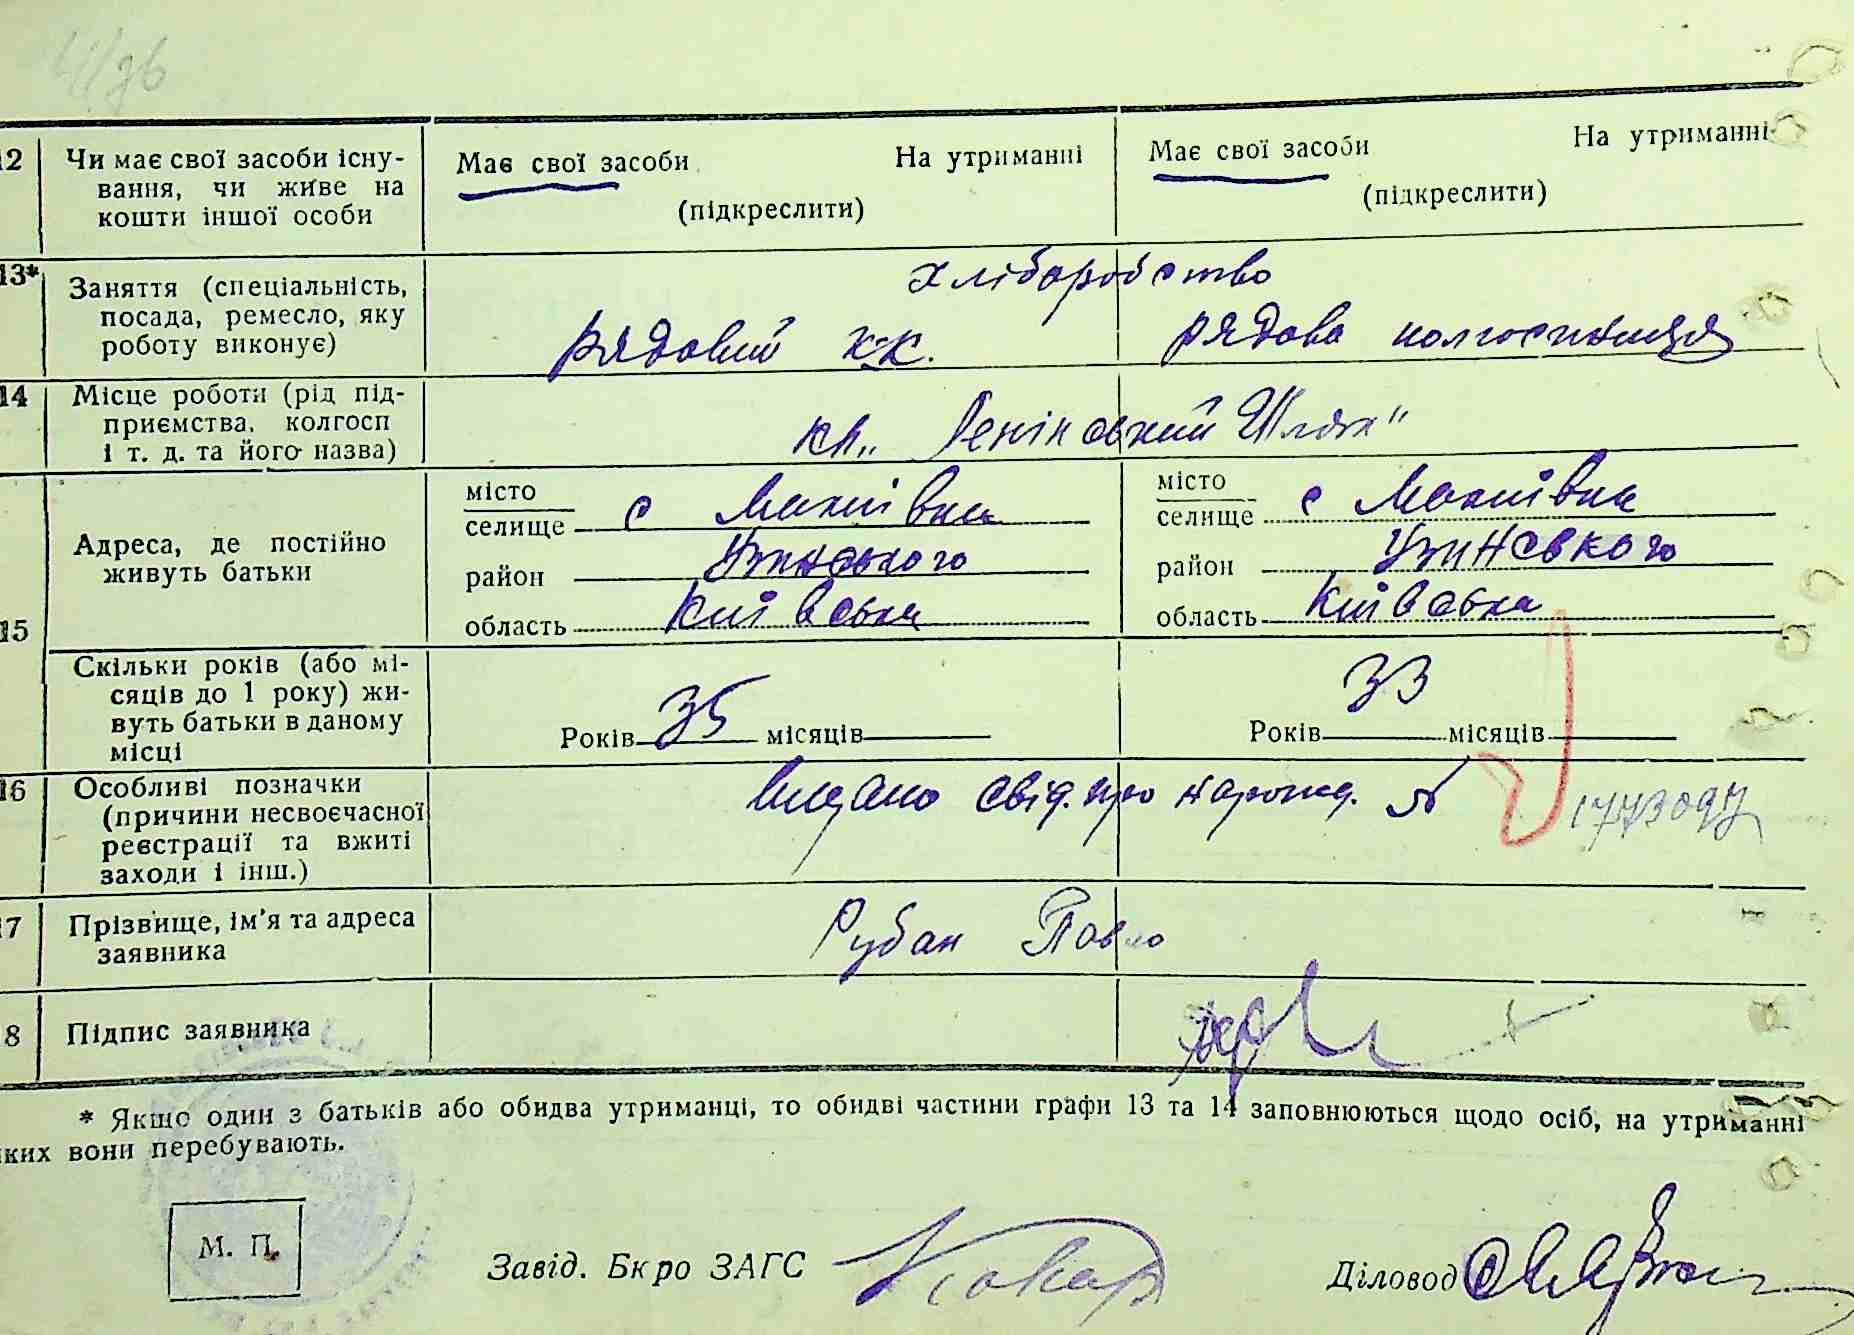 12 Чи має свої засоби існу-
вання, чи живе на
кошти іншої особи
Має свої засоби На утриманні
(підкреслити)
Має свої засоби На утриманні
(підкреслити)
13* Заняття (спеціальність,
посада, ремесло, яку
роботу виконує)
хліборобство
рядовий к-к. рядова колгоспниця
14 Місце роботи (рід під-
приємства, колгосп
і т. д. та його назва)
кл „Ленінський Шлях"
15
Адреса, де постійно
живуть батьки
місто
селище с Макіївка
район Узинського
область Київська
місто
селище с Макіївка
район Узинського
область Київська
Скільки років (або мі-
сяців до 1 року) жи-
вуть батьки в даному
місці
Років 35 місяців
Років 33 місяців
16 Особливі позначки
(причини несвоєчасної
реєстрації та вжиті
заходи і інш.)
Видано свід. про нарожд. №
17 Прізвище, ім'я та адреса
заявника
Рубан Павло
18 Підпис заявника
* Якщо один з батьків або обидва утриманці, то обидві частини графи 13 та 14 заповнюються щодо осіб, на утриманні
яких вони перебувають.
М. П.
Завід. Бюро ЗАГС
Діловод